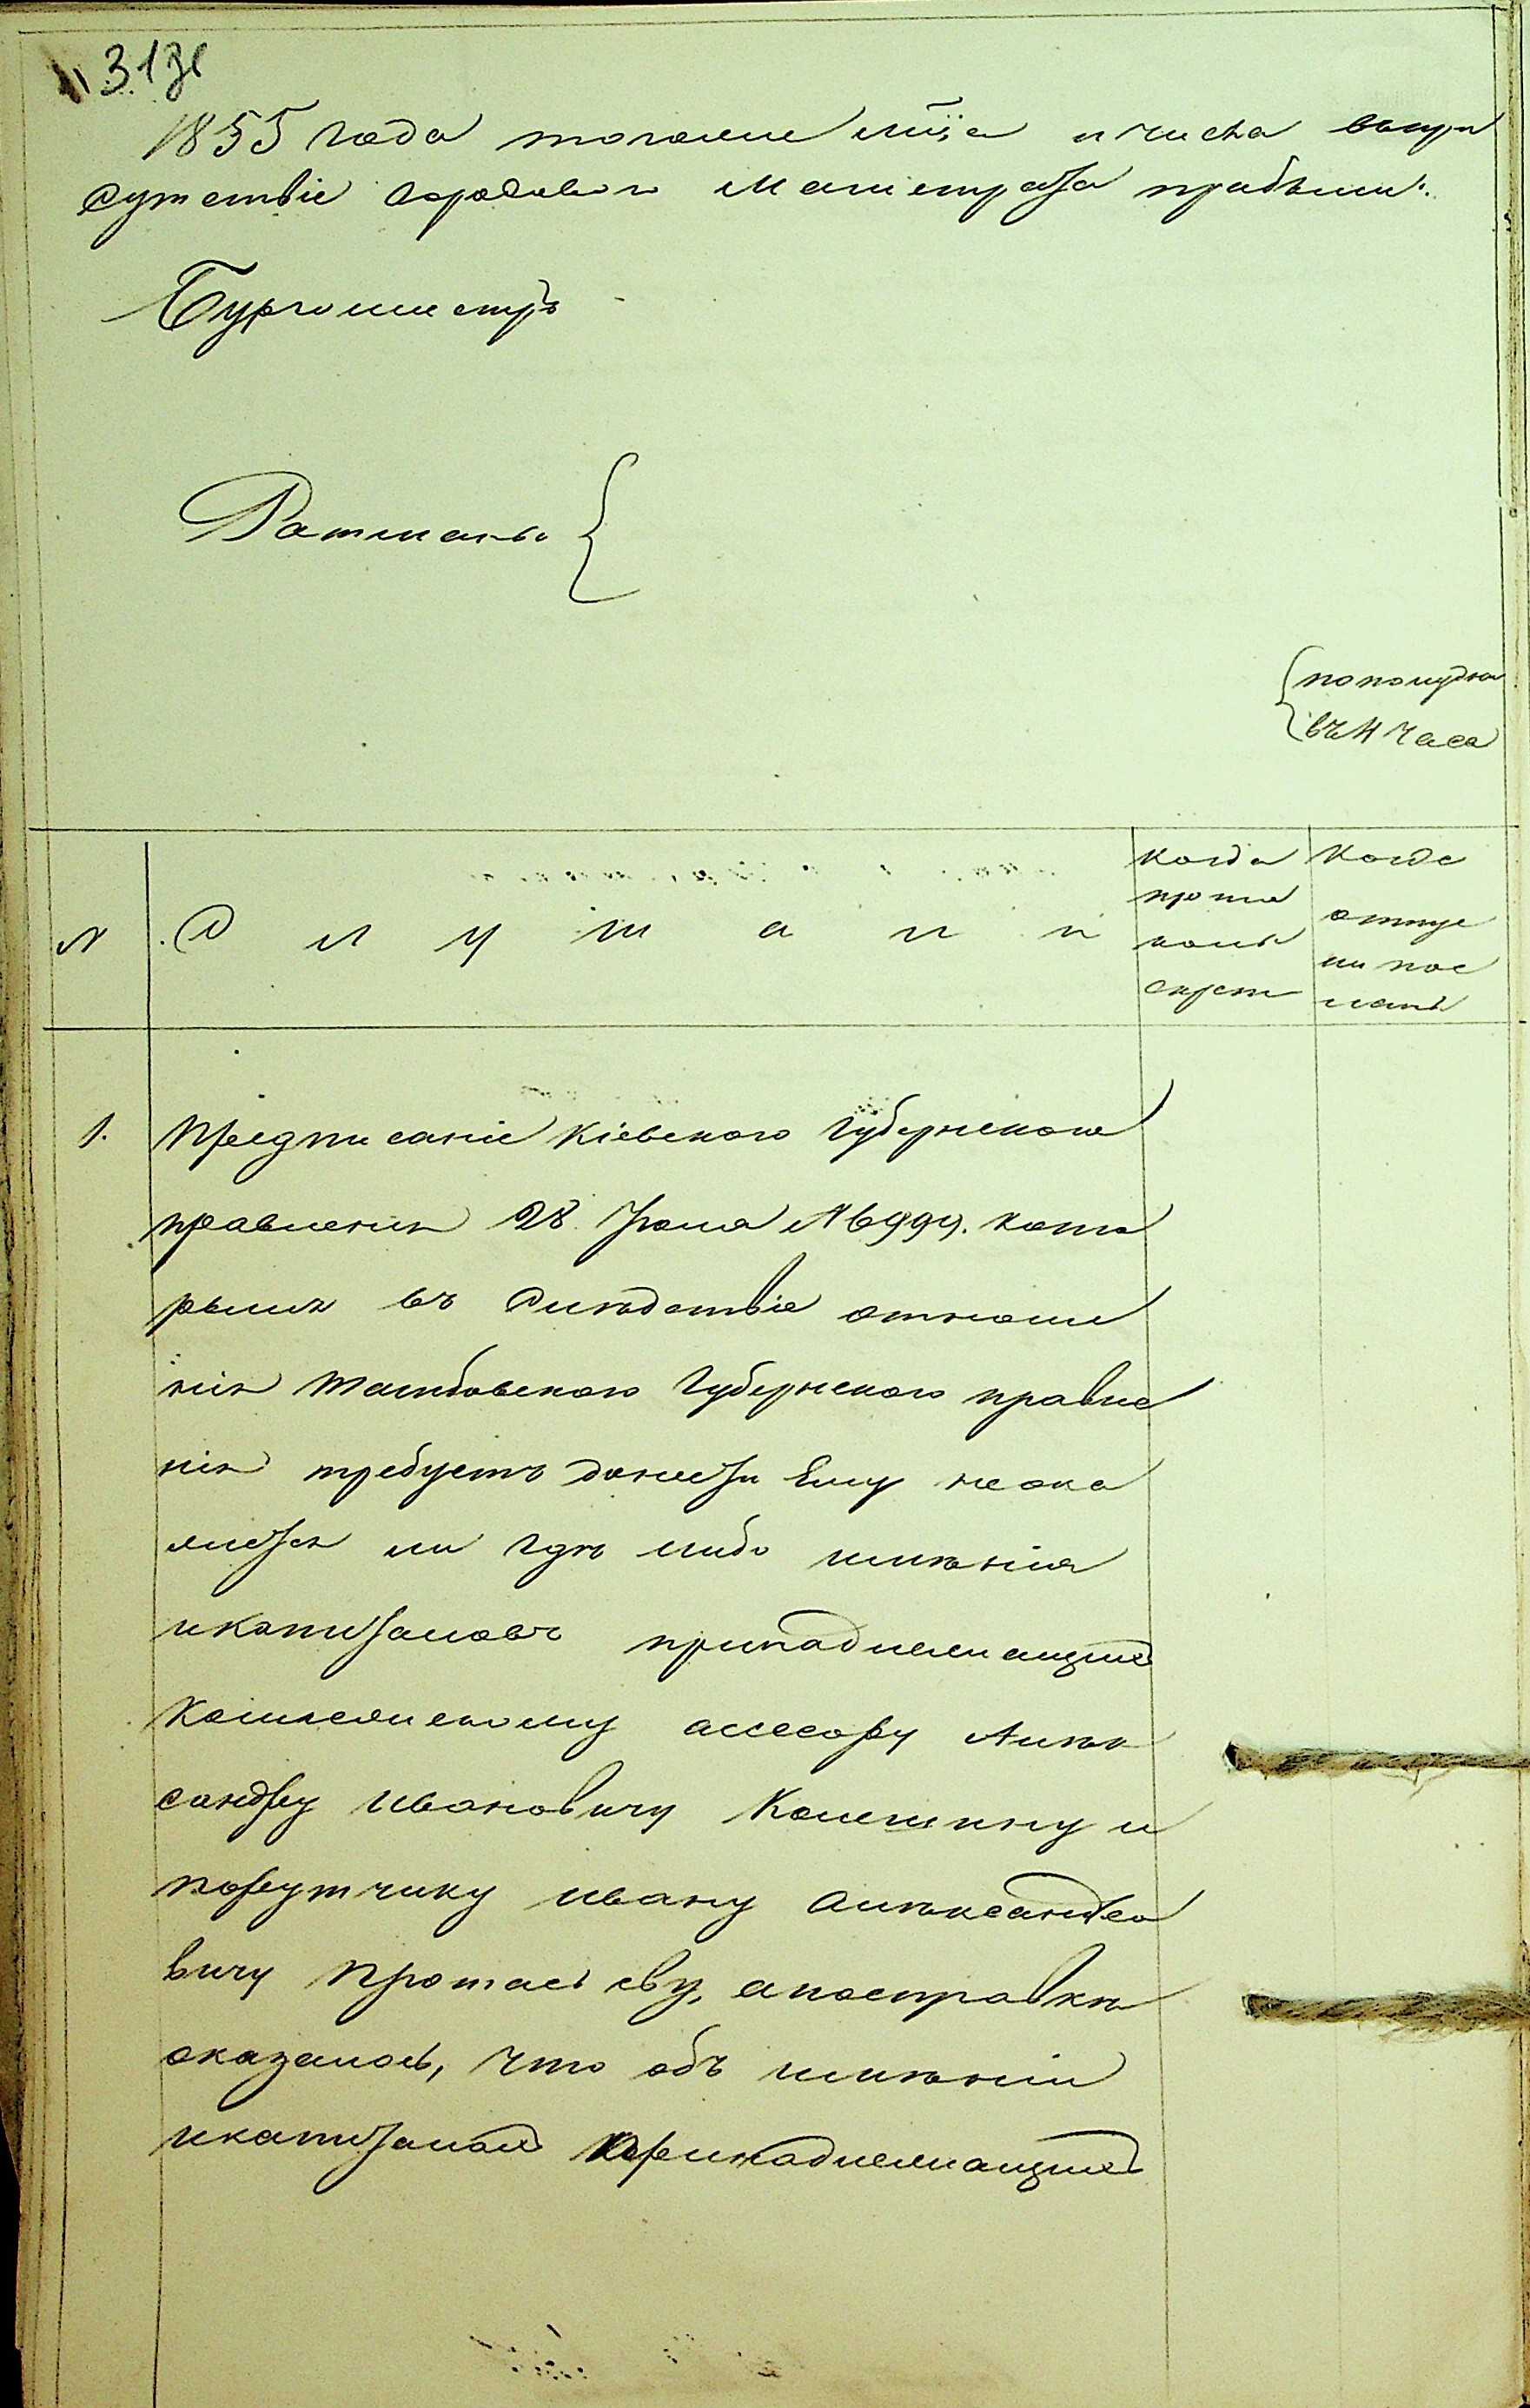 31
1855 года тогоже мѣсца и числа въ при
сутствіе городоваго Магистрата прибыли:
Бургомистръ
Ратманы
по полудни
въ 4 часа
№ Слушали
когда
прото
колъ
скреп
Когда
отпус
ки пос
ланы
1. Предписаніе Кіевскаго Губернскаго
правленія 28. Іюня № 6999. кото
рымъ въ слѣдствіе отноше
нія Тамбовскаго Губернскаго правле
нія требуетъ донести Ему неока
жется ли гдѣ либо имѣнія
икапиталовъ принадлежащихъ
Коллежскому ассесору Алѣк
сандру Ивановичу Колемину и
порутчику Ивану Алѣксандро
вичу Протасьеву, апосправкѣ
оказалось, что объ имѣніи
икапиталахъ принадлежащихъ